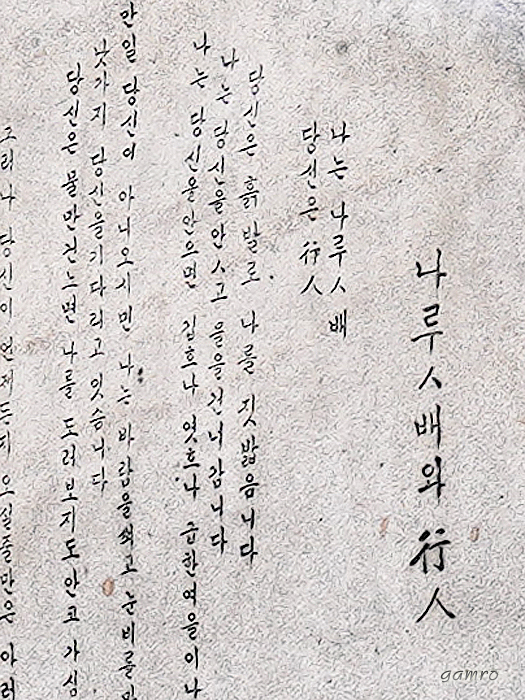 나루ㅅ배와 行人
나는 나루ㅅ배
당신은 行人
당신은 흙발로 나를 짓밟음니다
나는 당신을안ㅅ고 물을건너감니다
나는 당신을안으면 깁흐나 엿흐나 급한여을이나
만일 당신이 아니오시면 나는 바람을쐬고 눈비를
낫가지 당신을기다리고 잇슴니다
당신은 물만건느면 나를 도러보지도안코 가심
그러나 당신이 언제든지 오실줄만은 아러
gamro